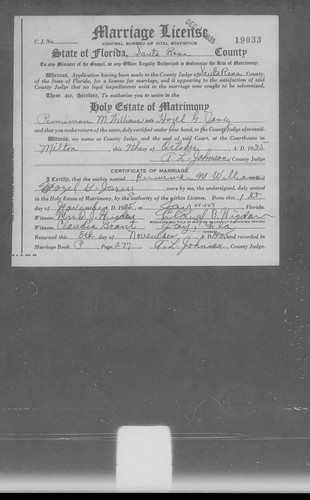 Marriage License
C. J. No.
CENTRAL BUREAU OF VITAL STATISTICS
DEC
19033
State of Florida, Santa Rosa County
To any Minister of the Gospel, or any Officer Legally Authorized to Solemnize the Rite of Matrimony:
Whereas, Application having been made to the County Judge of Santa Rosa County,
of the State of Florida, for a license for marriage, and it appearing to the satisfaction of said
County Judge that no legal impediments exist to the marriage now sought to be solemnized.
These are, therefore, To authorize you to unite in the
Holy Estate of Matrimony
Perniman M. Williams AND Hazel G.
and that you make return of the same, duly certified under your hand, to the County Judge aforesaid.
Witness, my name as County Judge, and the seal of said Court, at the Courthouse in
Milton, this day of October A. D. 1935
A. L. Johnson, County Judge
CERTIFICATE OF MARRIAGE
I Certify, that the within named Perniman M. Williams
Hazel G. were by me, the undersigned, duly united
in the Holy Estate of Matrimony, by the authority of the within License. Done this 1st
day of November A. D. 1935 at Jay, Florida.
Witness Mrs.
Witness Claudia Grant Jay, Fla
Returned this 6th day of November A. D. 1935 and recorded in
Marriage Book P, Page 277. A. L. Johnson, County Judge.